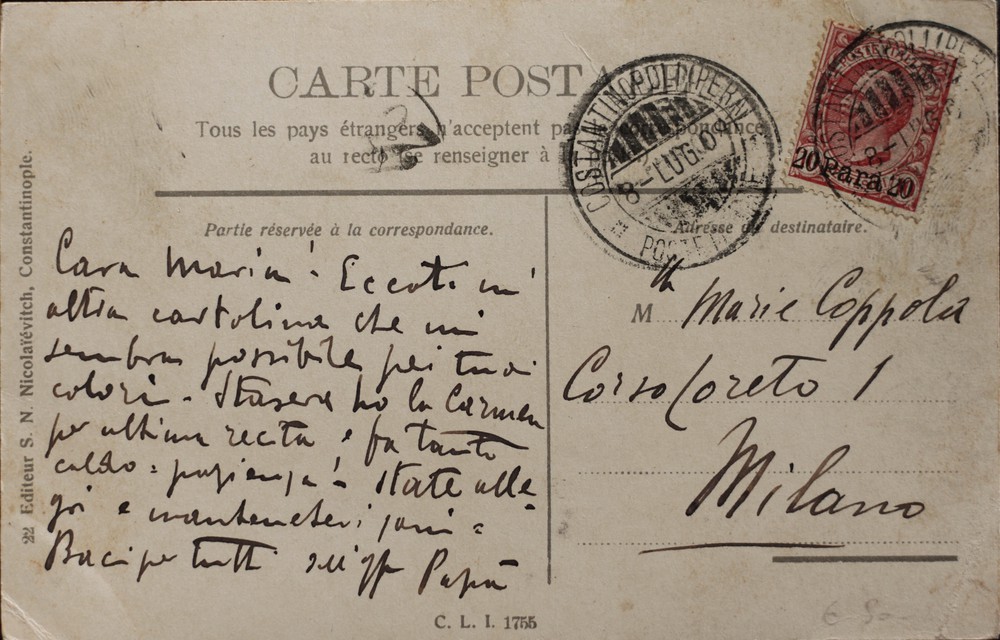 CARTE POSTA
Tous les pays étrangers n'acceptent pas
au recto se renseigner à
COSTANTINOPOLI (PERA)
8-LUG.0
POSTE
20 Para 20
Partie réservée à la correspondance.
Adresse du destinataire.
Cara Maria! Eccoti un'
altra cartolina che mi
sembra possibile pei tuoi
colori. Stasera ho la Carmen
per ultima recita e fa tanto
caldo = pazienza! State alle
gri e mantenetevi sani =
Baci per tutti Papà
M Marie Coppola
Corso Loreto 1
Milano
22 Editeur S. N. Nicolaïévitch, Constantinople.
C. L. I. 1755